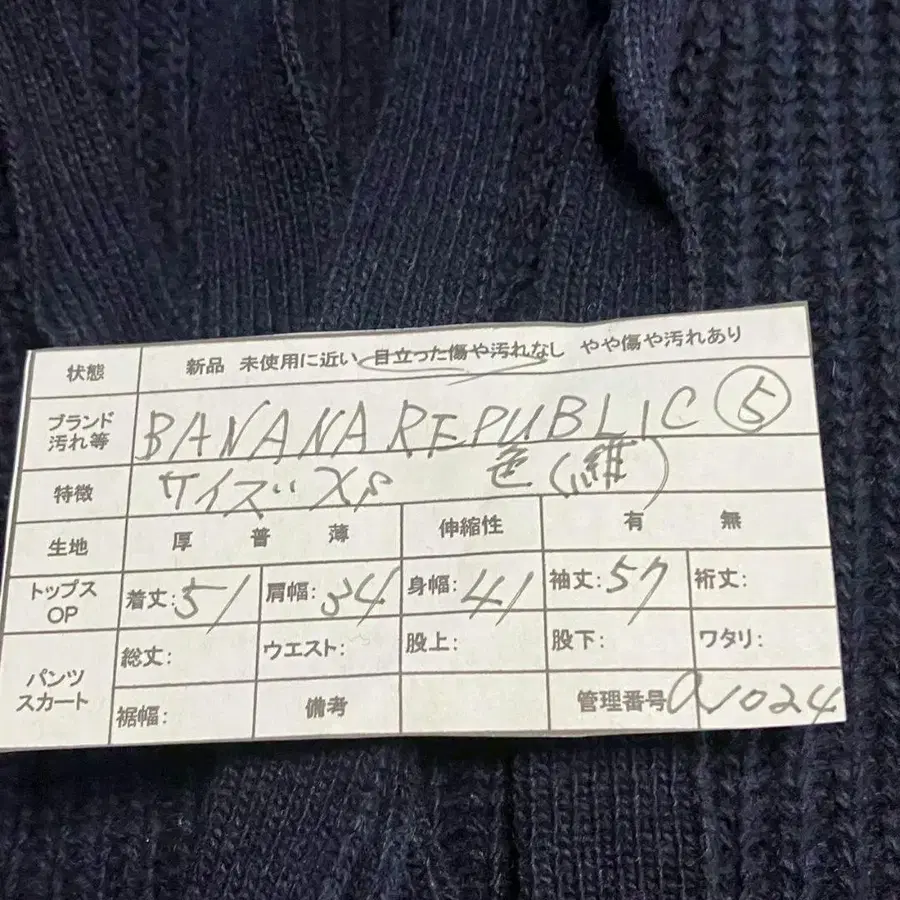 状態 新品 未使用に近い 目立った傷や汚れなし やや傷や汚れあり
ブランド 汚れ等 BANANA REPUBLIC ⑤
特徴 サイズ XS 色( )
生地 厚 普 薄 伸縮性 有 無
トップス OP 着丈:51 肩幅:34 身幅:41 袖丈:57 裄丈:
パンツ スカート 総丈: ウエスト: 股上: 股下: ワタリ:
裾幅: 備考 管理番号 1024